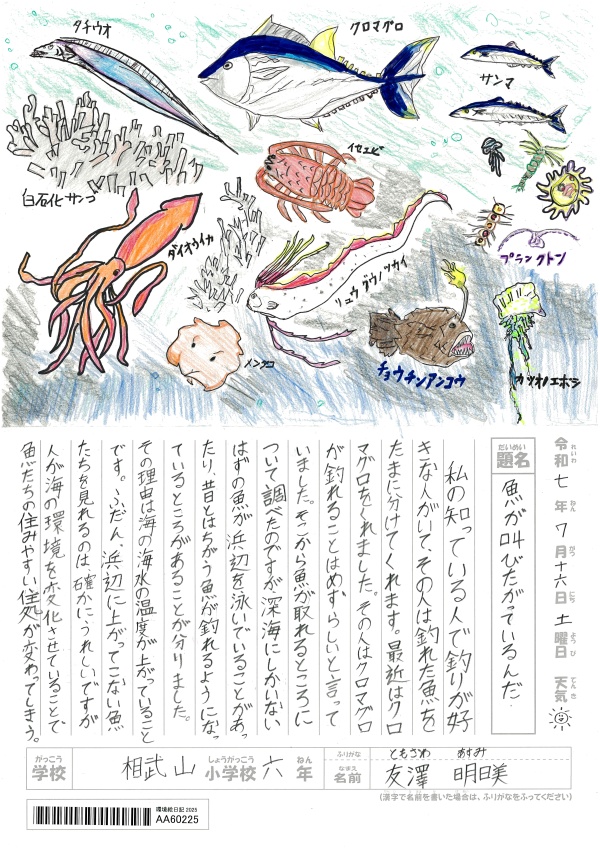 タチウオ
クロマグロ
サンマ
イセエビ
白石化サンゴ
ダイオウイカ
リュウグウノツカイ
プランクトン
メンダコ
チョウチンアンコウ
カツオノエボシ
令和七年7月十六日土曜日 天気
れいわ ねん がつ にち ようび てんき
だいめい
題名 魚が叫びたがっているんだ
私の知っている人で釣りが好
きな人がいて、その人は釣れた魚を
たまに分けてくれます。最近はクロ
マグロをくれました。その人はクロマグロ
が釣れることはめずらしいと言って
いました。そこから魚が取れるところに
ついて調べたのですが深海にしかいない
はずの魚が浜辺を泳いでいることがあっ
たり、昔とはちがう魚が釣れるようになっ
ているところがあることが分りました。
その理由は海の海水の温度が上がっていること
です。ふだん、浜辺に上がってこない魚
たちを見れるのは、確かにうれしいですが
人が海の環境を変化させていることで
魚たちの住みやすい住処が変わってしまう。
がっこう
学校 相武山 小学校 六 年
しょうがっこう ねん
ふりがな ともざわ あすみ
なまえ
名前 友澤 明日美
(漢字で名前を書いた場合は、ふりがなをふってください)
環境絵日記 2025
AA60225